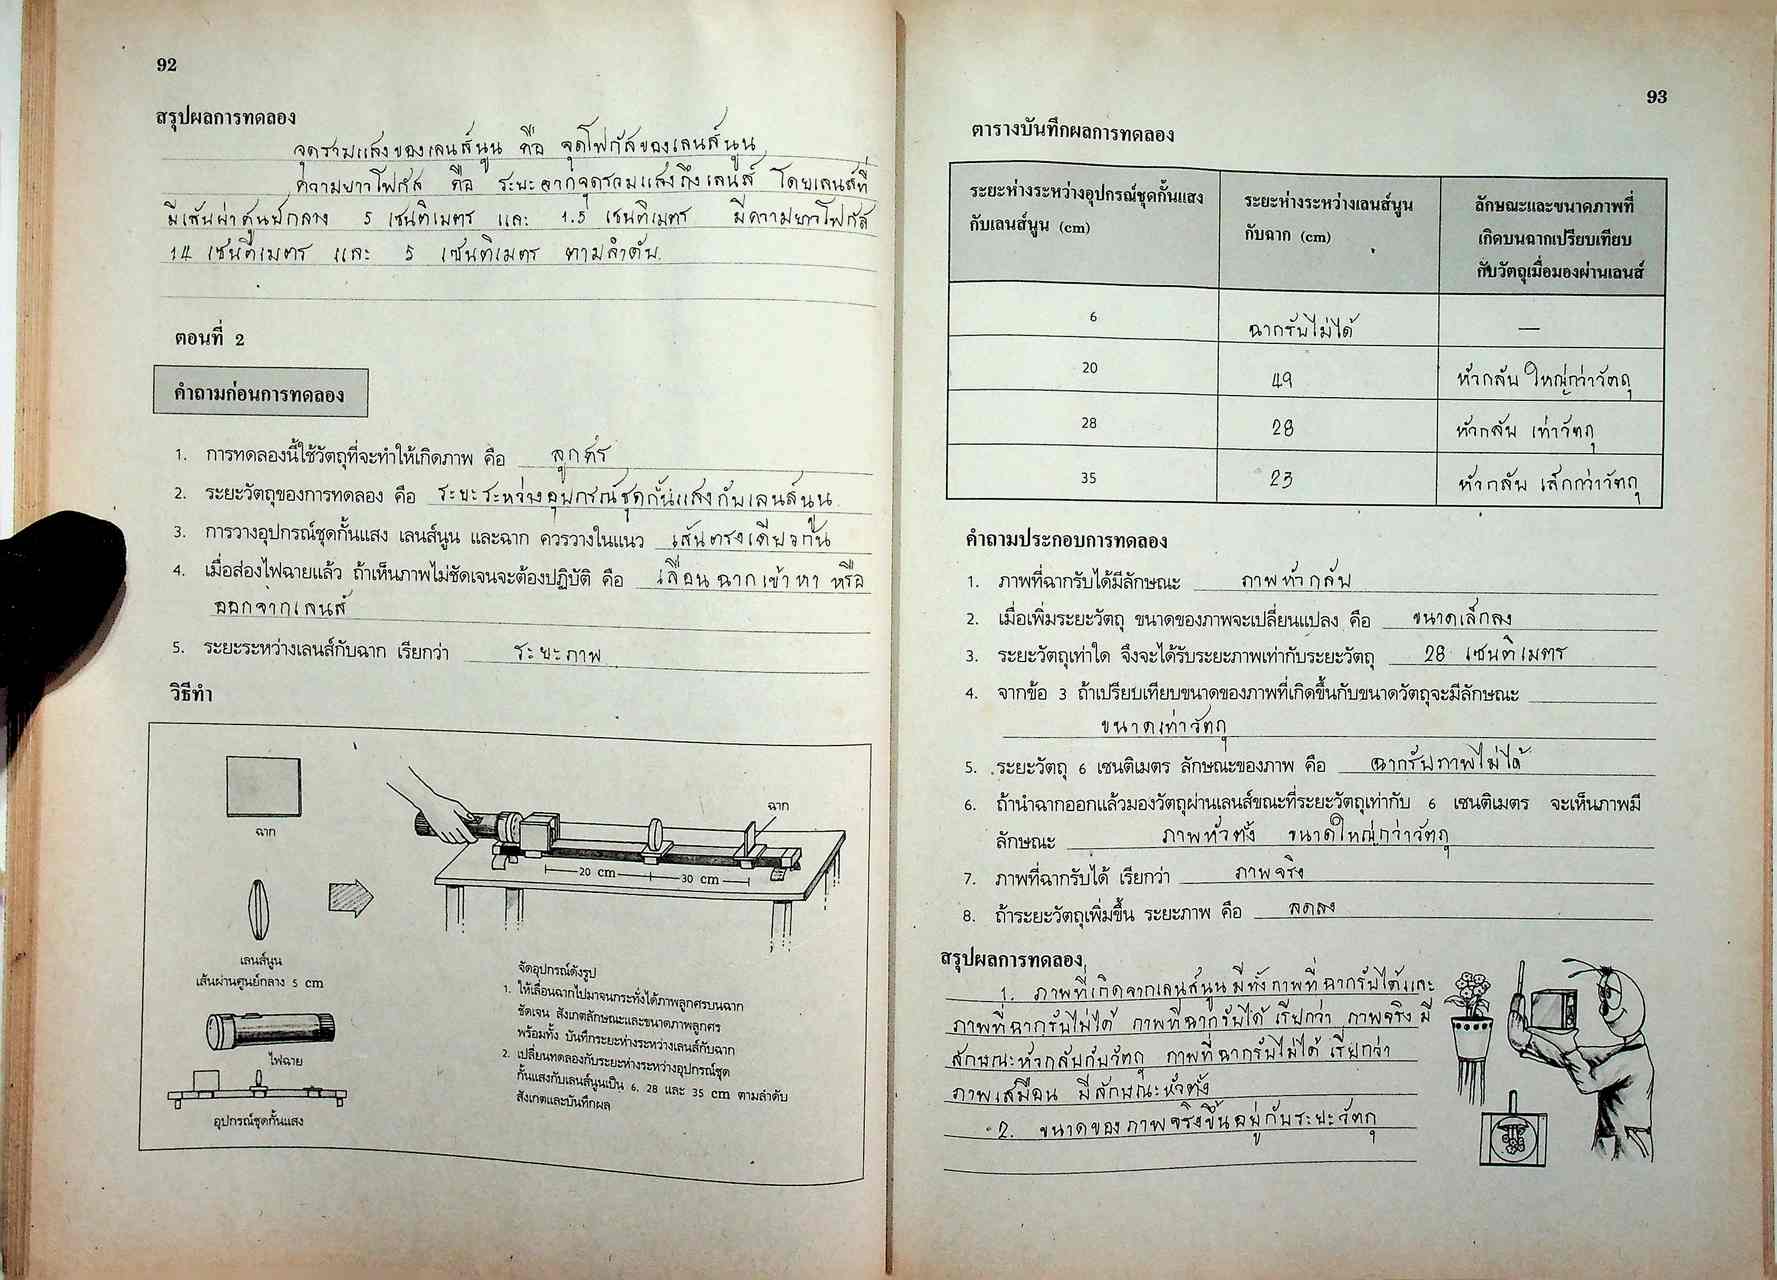 92
สรุปผลการทดลอง
จุดรวมแสงของเลนส์นูน คือ จุดโฟกัสของเลนส์นูน
ความยาวโฟกัส คือ ระยะจากจุดรวมแสงถึงเลนส์ โดยเลนส์ที่
มีเส้นผ่าศูนย์กลาง 5 เซนติเมตร และ 1.5 เซนติเมตร มีความยาวโฟกัส
14 เซนติเมตร และ 5 เซนติเมตร ตามลำดับ
ตอนที่ 2
คำถามก่อนการทดลอง
1. การทดลองนี้ใช้วัตถุที่จะทำให้เกิดภาพ คือ ลูกศร
2. ระยะวัตถุของการทดลอง คือ ระยะระหว่างอุปกรณ์ชุดกั้นแสงกับเลนส์นูน
3. การวางอุปกรณ์ชุดกั้นแสง เลนส์นูน และฉาก ควรวางในแนว เส้นตรงเดียวกัน
4. เมื่อส่องไฟฉายแล้ว ถ้าเห็นภาพไม่ชัดเจนจะต้องปฏิบัติ คือ เลื่อนฉากเข้าหา หรือ
ออกจากเลนส์
5. ระยะระหว่างเลนส์กับฉาก เรียกว่า ระยะภาพ
วิธีทำ
ฉาก
เลนส์นูน
เส้นผ่านศูนย์กลาง 5 cm
ไฟฉาย
อุปกรณ์ชุดกั้นแสง
ฉาก
20 cm
30 cm
จัดอุปกรณ์ดังรูป
1. ให้เลื่อนฉากไปมาจนกระทั่งได้ภาพลูกศรบนฉาก
ชัดเจน สังเกตลักษณะและขนาดภาพลูกศร
พร้อมทั้ง บันทึกระยะห่างระหว่างเลนส์กับฉาก
2. เปลี่ยนทดลองกับระยะห่างระหว่างอุปกรณ์ชุด
กั้นแสงกับเลนส์นูนเป็น 6, 28 และ 35 cm ตามลำดับ
สังเกตและบันทึกผล
93
ตารางบันทึกผลการทดลอง
ระยะห่างระหว่างอุปกรณ์ชุดกั้นแสง
กับเลนส์นูน (cm)
ระยะห่างระหว่างเลนส์นูน
กับฉาก (cm)
ลักษณะและขนาดภาพที่
เกิดบนฉากเปรียบเทียบ
กับวัตถุเมื่อมองผ่านเลนส์
6 ฉากรับไม่ได้ —
20 49 หัวกลับ ใหญ่กว่าวัตถุ
28 28 หัวกลับ เท่าวัตถุ
35 23 หัวกลับ เล็กกว่าวัตถุ
คำถามประกอบการทดลอง
1. ภาพที่ฉากรับได้มีลักษณะ ภาพหัวกลับ
2. เมื่อเพิ่มระยะวัตถุ ขนาดของภาพจะเปลี่ยนแปลง คือ ขนาดเล็กลง
3. ระยะวัตถุเท่าใด จึงจะได้รับระยะภาพเท่ากับระยะวัตถุ 28 เซนติเมตร
4. จากข้อ 3 ถ้าเปรียบเทียบขนาดของภาพที่เกิดขึ้นกับขนาดวัตถุจะมีลักษณะ
ขนาดเท่าวัตถุ
5. ระยะวัตถุ 6 เซนติเมตร ลักษณะของภาพ คือ ฉากรับภาพไม่ได้
6. ถ้านำฉากออกแล้วมองวัตถุผ่านเลนส์ขณะที่ระยะวัตถุเท่ากับ 6 เซนติเมตร จะเห็นภาพมี
ลักษณะ ภาพหัวตั้ง ขนาดใหญ่กว่าวัตถุ
7. ภาพที่ฉากรับได้ เรียกว่า ภาพจริง
8. ถ้าระยะวัตถุเพิ่มขึ้น ระยะภาพ คือ ลดลง
สรุปผลการทดลอง
1. ภาพที่เกิดจากเลนส์นูนมีทั้งภาพที่ฉากรับได้และ
ภาพที่ฉากรับไม่ได้ ภาพที่ฉากรับได้ เรียกว่า ภาพจริง มี
ลักษณะหัวกลับกับวัตถุ ภาพที่ฉากรับไม่ได้ เรียกว่า
ภาพเสมือน มีลักษณะหัวตั้ง
2. ขนาดของภาพจริงขึ้นอยู่กับระยะวัตถุ